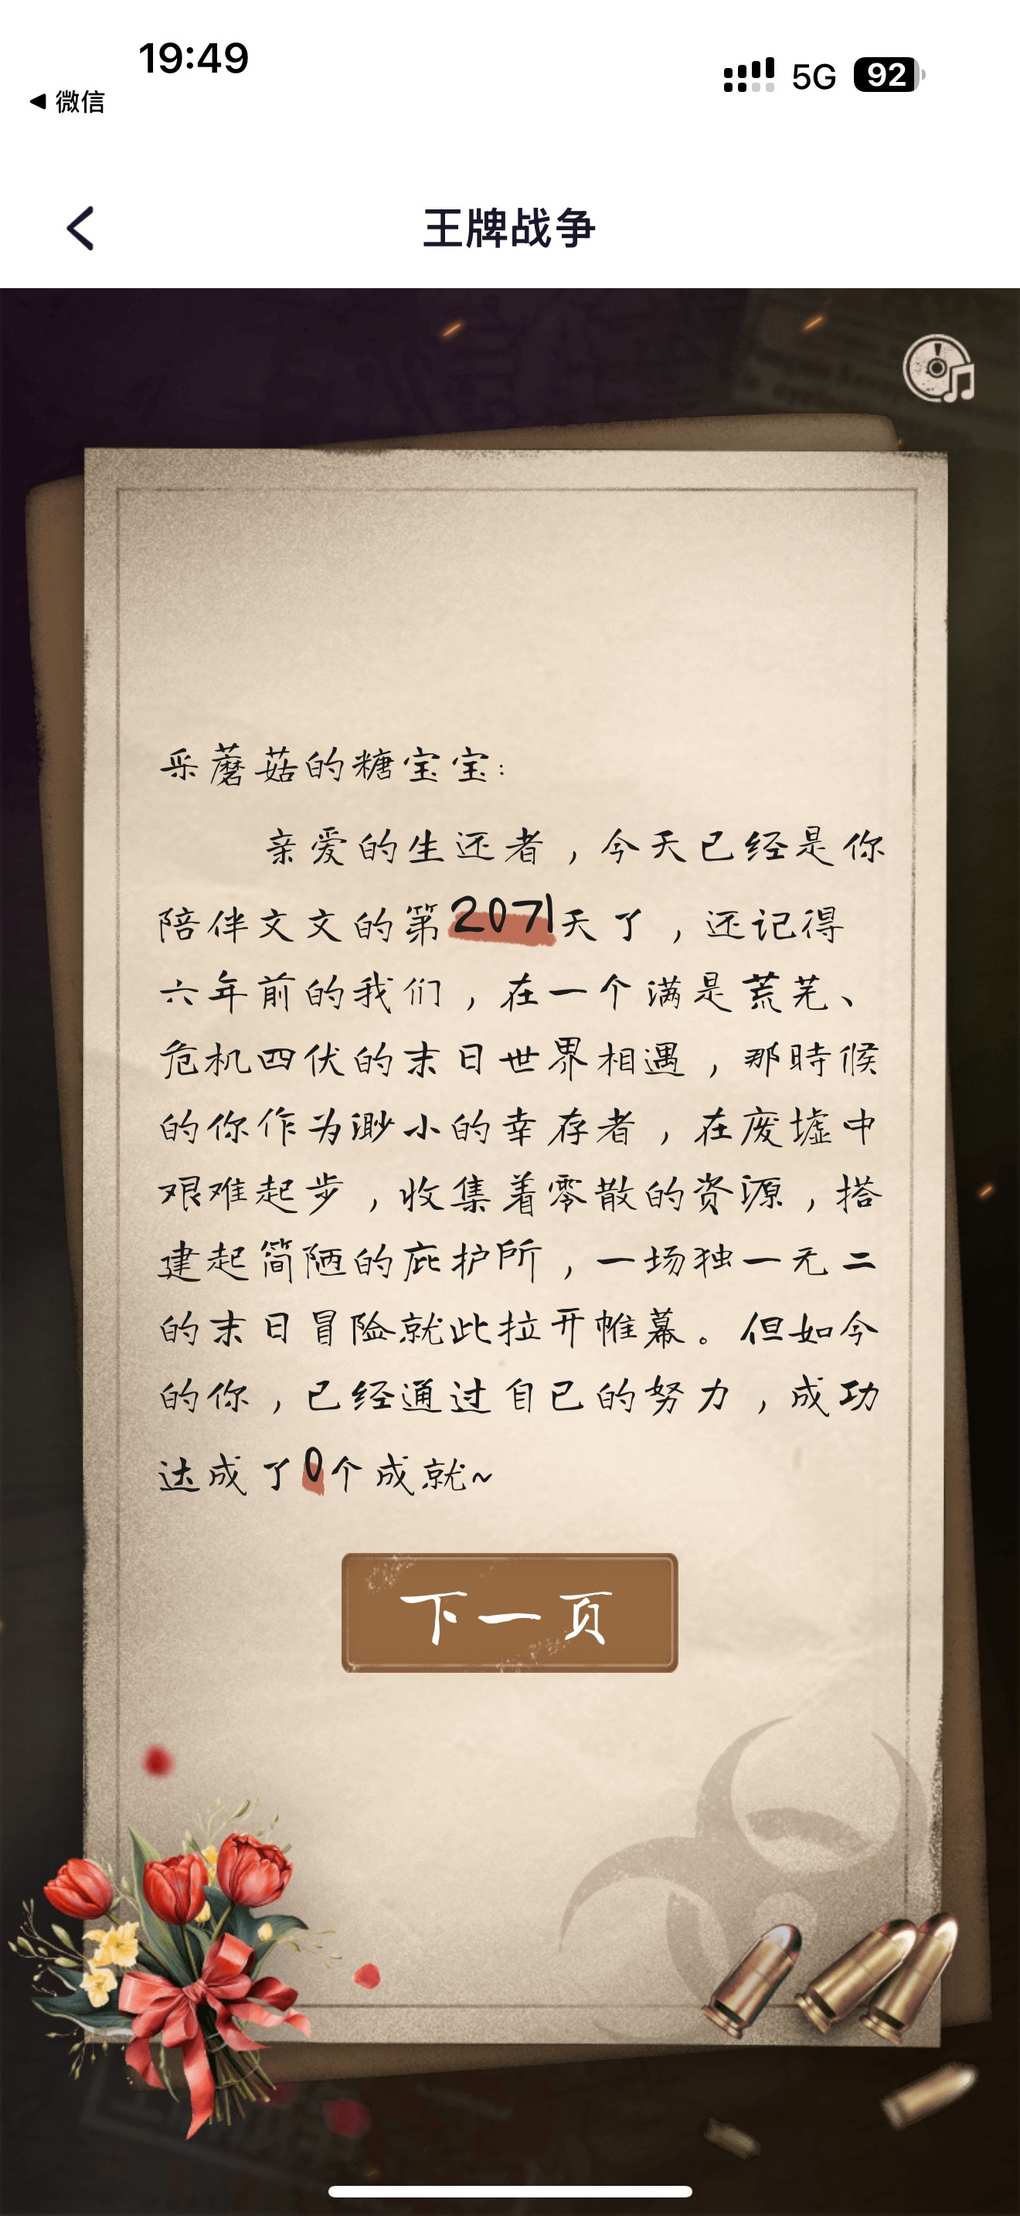 19:49
5G
92
◀ 微信
王牌战争
采蘑菇的糖宝宝:
亲爱的生还者，今天已经是你
陪伴文文的第2071天了，还记得
六年前的我们，在一个满是荒芜、
危机四伏的末日世界相遇，那時候
的你作为渺小的幸存者，在废墟中
艰难起步，收集着零散的资源，搭
建起简陋的庇护所，一场独一无二
的末日冒险就此拉开帷幕。但如今
的你，已经通过自己的努力，成功
达成了0个成就~
下一页